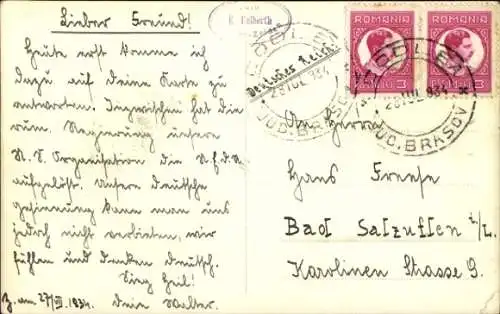 Lieber Freund!
Heute erst komme ich
dazu auf deine Karte zu
antworten. Inzwischen hat die
rum. Regierung unsere
N.S. Organisation die N.d.R.
aufgelöst. Unsere deutsche
gesinnung kann man uns
jedoch nicht verbieten, wir
fühlen und denken deutsch.
Sieg Heil!
Z. am. 27/VII. 1934. dein Walter.
Foto
R. Helberth
ROMANIA
3
ROMANIA
3
CODLEA
28 IUL 934
JUD. BRASOV
CODLEA
28 IUL 934
JUD. BRASOV
Deutsches Reich
An Herrn
Hans Freese
Bad Salzuflen i/L.
Karolinen Strasse 9.